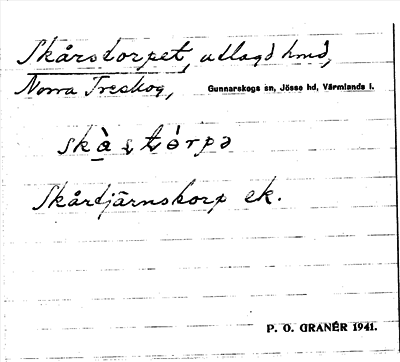 Skårstorpet, utlagd hmd,
Norra Treskog, Gunnarskogs sn, Jösse hd, Värmlands l.
skȧ̀ştórpə
Skårtjärnstorp ek.
P. O. GRANÉR 1941.